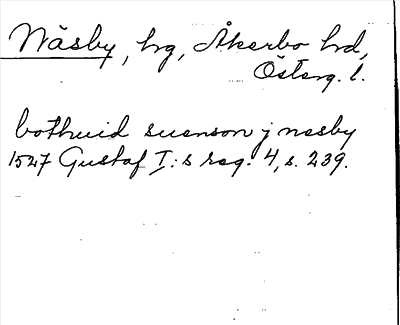 Näsby, hg, Åkerbo hd,
Österg. l.
bothuid suenson j nesby
1527 Gustaf I:s reg. 4, s. 239.